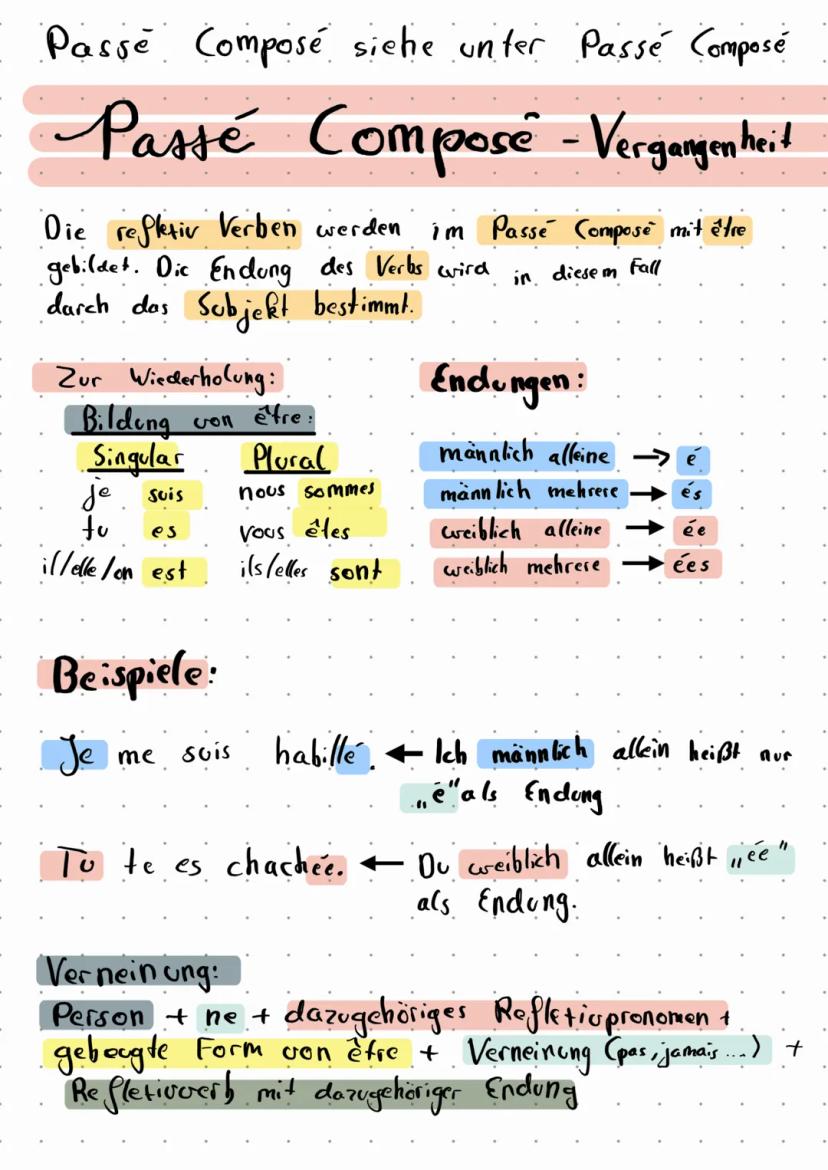 Passé Composé siehe unter Passé Composé
Passé Composé - Vergangenheit
Die refletiv Verben werden im Passé Composé mit être
gebildet. Die Endung des Verbs wird in diesem Fall
darch das Subjekt bestimmt.
Zur Wiederholung:
Bildung von être:
Singular Plural
je suis nous sommes
tu es vous êtes
il/elle/on est ils/elles sont
Endungen:
männlich alleine → é
männlich mehrere → és
weiblich alleine → ée
weiblich mehrere → ées
Beispiele:
Je me suis habillé. ← Ich männlich allein heißt nur
„é" als Endung
Tu te es chachée. ← Du weiblich allein heißt „ée"
als Endung.
Verneinung:
Person + ne + dazugehöriges Refletivpronomen +
gebeugte Form von être + Verneinung (pas, jamais ...) +
Refletivverb mit dazugehöriger Endung